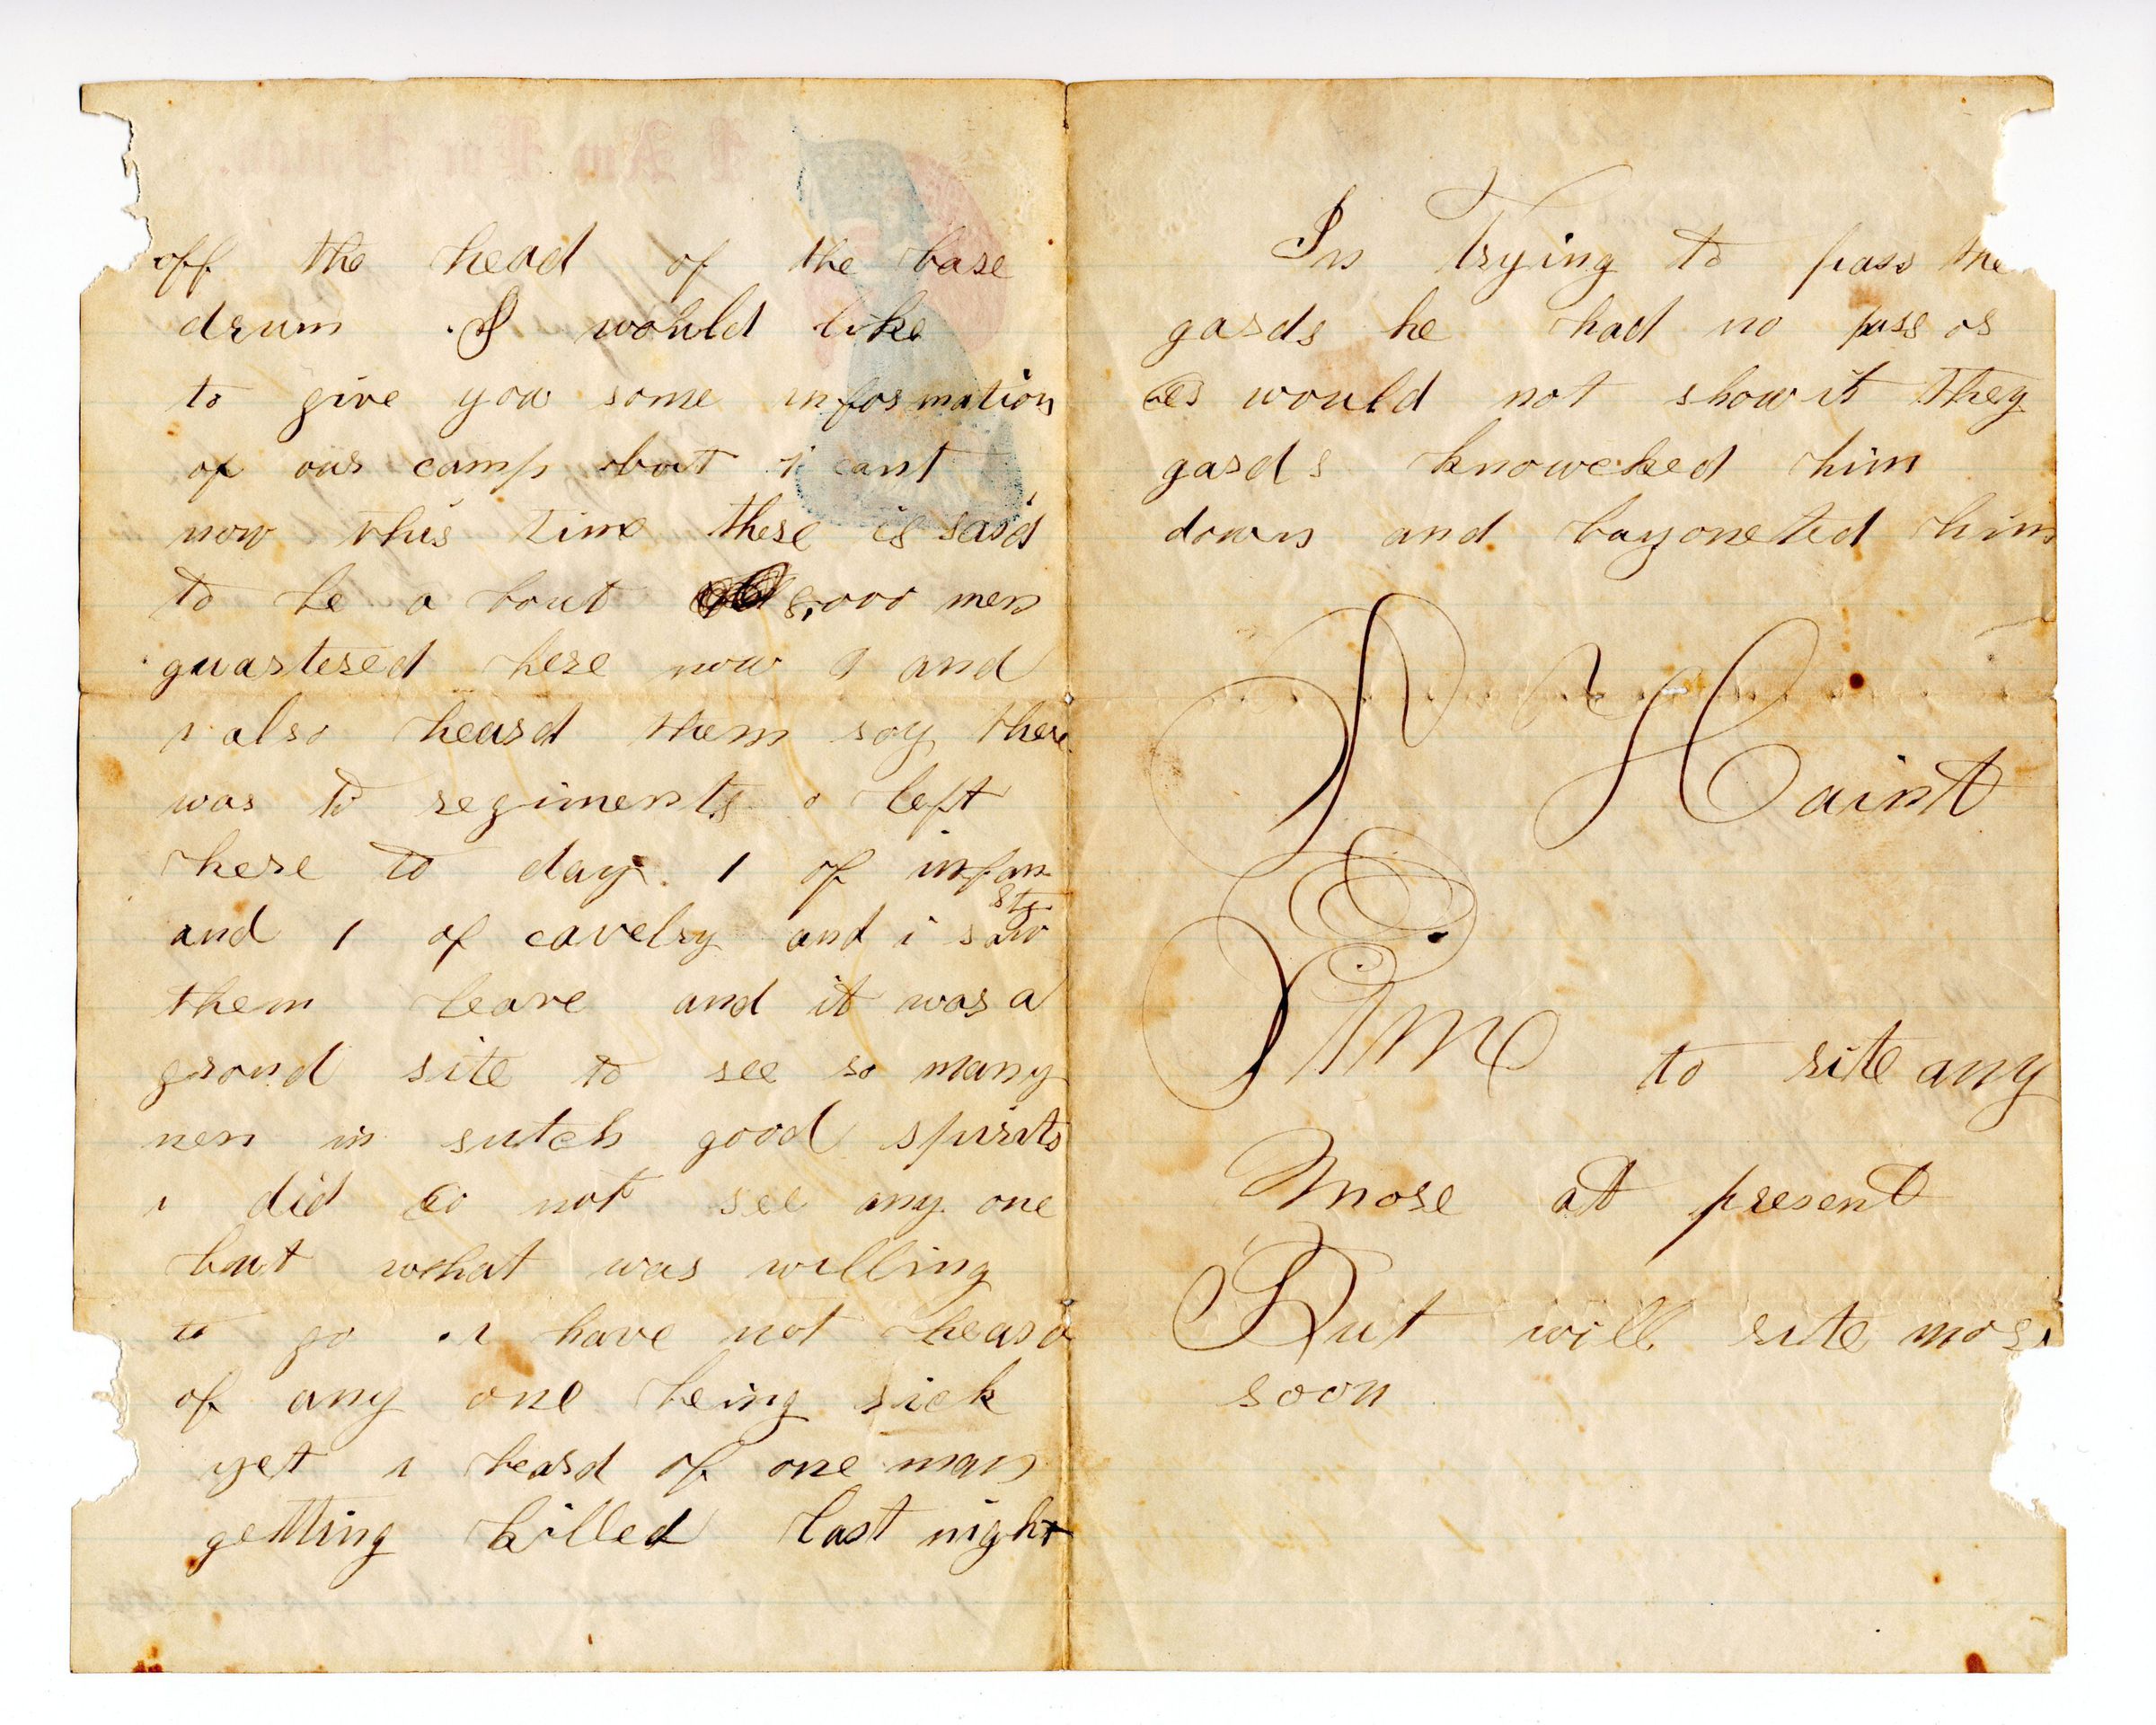 off the head of the base
drum . I would like
to give you some information
of our camp but i cant
now this time there is said
to be a bout 8,000 men
quartered here now and
i also heard them say there
was to regiments left
here to day 1 of infan
try
and 1 of cavelry and i saw
them leave and it was a
grand site to see so many
men in sutch good spirits
i did not see any one
but what was willing
to go . i have not heard
of any one being sick
yet i heard of one man
getting killed last night
In Trying to pass the
gards he had no pass or
would not show it They
gards knowcked him
down and bayoneted him
I Haint
Time to rite any
More at present
But will rite more
soon